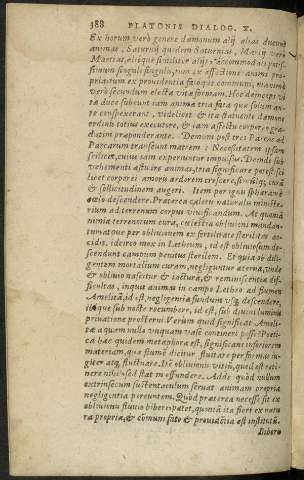 388 PLATONIS DIALOG. X.
Ex horum verò genere dæmonum alij alias ducunt
animas, Saturnij quidem Saturnias, Martij verò
Martias, alięque similiter alijs accommodatis pos-
simum singuli singulis, non ex affectione animæ pro-
priarum ex prouidentia satóque communi, maximè
verò secundum electæ vitæ formam. Hoc deinceps vi-
tæ duce subeunt iam animæ tria fata quæ solium an-
tè conspexerant, videlicet & ita fiunt
ordini totius executore, & iam affectu corpore, gra-
datim præponderante. Demum post tres Parcas ad
Parcarum transeunt matrem: Necessitatem ipsam
scilicet, cuius iam experiuntur impulsus. Deinde sub
vehementi æstu ire animas, tria significare potest sci
licet corporei amoris ardorem crescere, sensus, curá
& sollicitudinem augeri. Item per ignis sphæram è
cælo descendere. Præterea calere naturali ministe-
rium ad terrenum corpus viuificandum. At quoniã
nimia terrenorum cura, cælestia obliuioni mandan-
tur atque per obliuionem ex fertilitate sterilitas ac-
cidit, idcirco mox in Lethæum, id est obliuiosum de-
scendunt campum penitus sterilem. Et quia ob dili-
gentem mortalium curam, negliguntur æterna, vnde
& obliuio nascitur & iactura, & reminiscentia dif-
ficultas, inquit animas in campo Lethæo ad flumen
Amelitã, id est, negligentia fundum vsq; descendere,
ibíque sub nocte recumbere, id est, sub diuini luminis
priuatione prosterni Verùm quid significat Amelit-
tæ aquam nullo vnquam vase contineri posse? Poeti-
ca hæc quidem metaphora est, significans inferiorem
materiam, quæ flumē dicitur fluitare per formas iu-
giter atq; fluctuare. Ité obliuionis vitiũ, quod est reti-
nere nihil sed statim effundere. Adde quòd nullum
extrinsecum sustentaculum seruat animam propria
negligentia pereuntem. Quòd præterea necesse sit ex
obliuionis fluuio bibere potet, quum ita fiat ex natu
ra propria, & cõmuni fato & prouidētia est institutũ.
Bibere